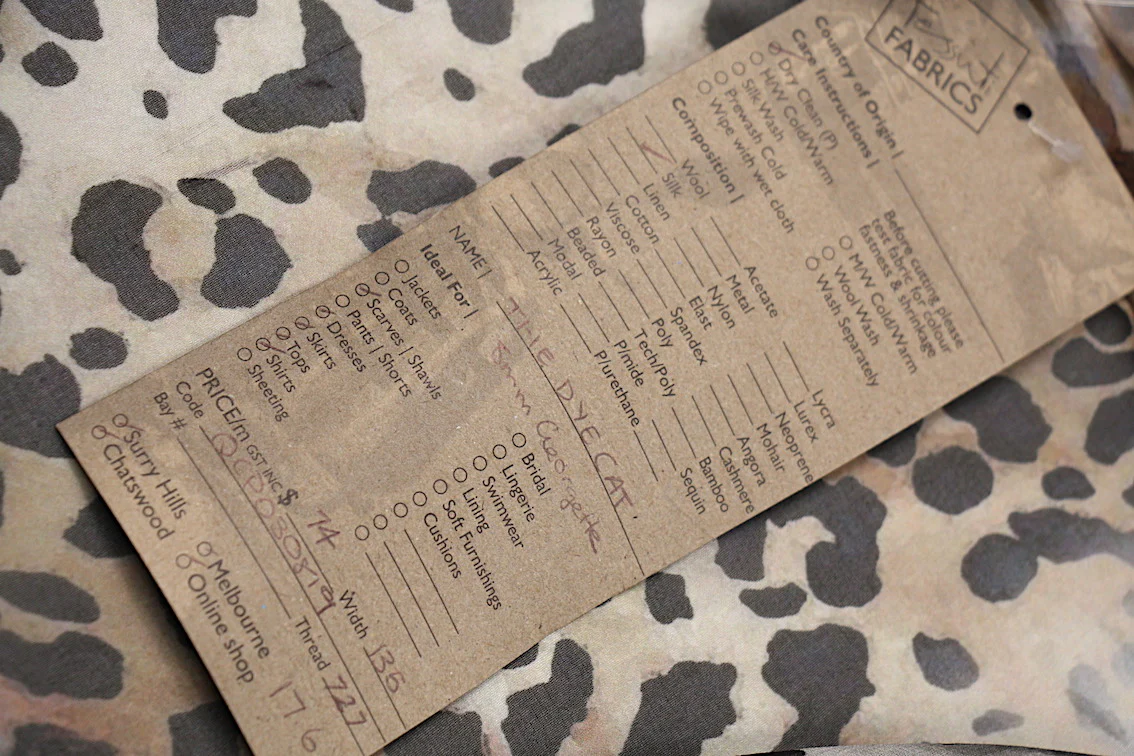 Tessuti
FABRICS
Country of Origin |
Care Instructions |
Dry Clean (P)
H/W Cold/Warm
Silk Wash
Prewash Cold
Wipe with wet cloth
Before cutting please
test fabric for colour
fastness & shrinkage
M/W Cold/Warm
Wool Wash
Wash Separately
Composition |
Wool
Silk
Linen
Cotton
Viscose
Rayon
Beaded
Modal
Acrylic
Acetate
Metal
Nylon
Elast
Spandex
Poly
Tech/Poly
P/mide
P/urethane
Lycra
Lurex
Neoprene
Mohair
Angora
Cashmere
Bamboo
Sequin
NAME | THE DYECAT.
8mm Georgette
Ideal For |
Jackets
Coats
Scarves | Shawls
Pants | Shorts
Dresses
Skirts
Tops
Shirts
Sheeting
Bridal
Lingerie
Swimwear
Lining
Soft Furnishings
Cushions
PRICE/m GST INC $ 74 Width 135
Code Thread 727
Bay #
Surry Hills
Chatswood
Melbourne
Online shop
17 6